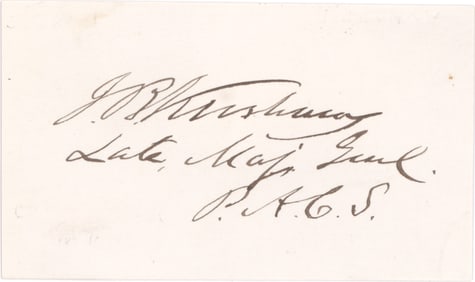 J. B. Kershaw
Late, Maj. Genl.
P. A. C. S.